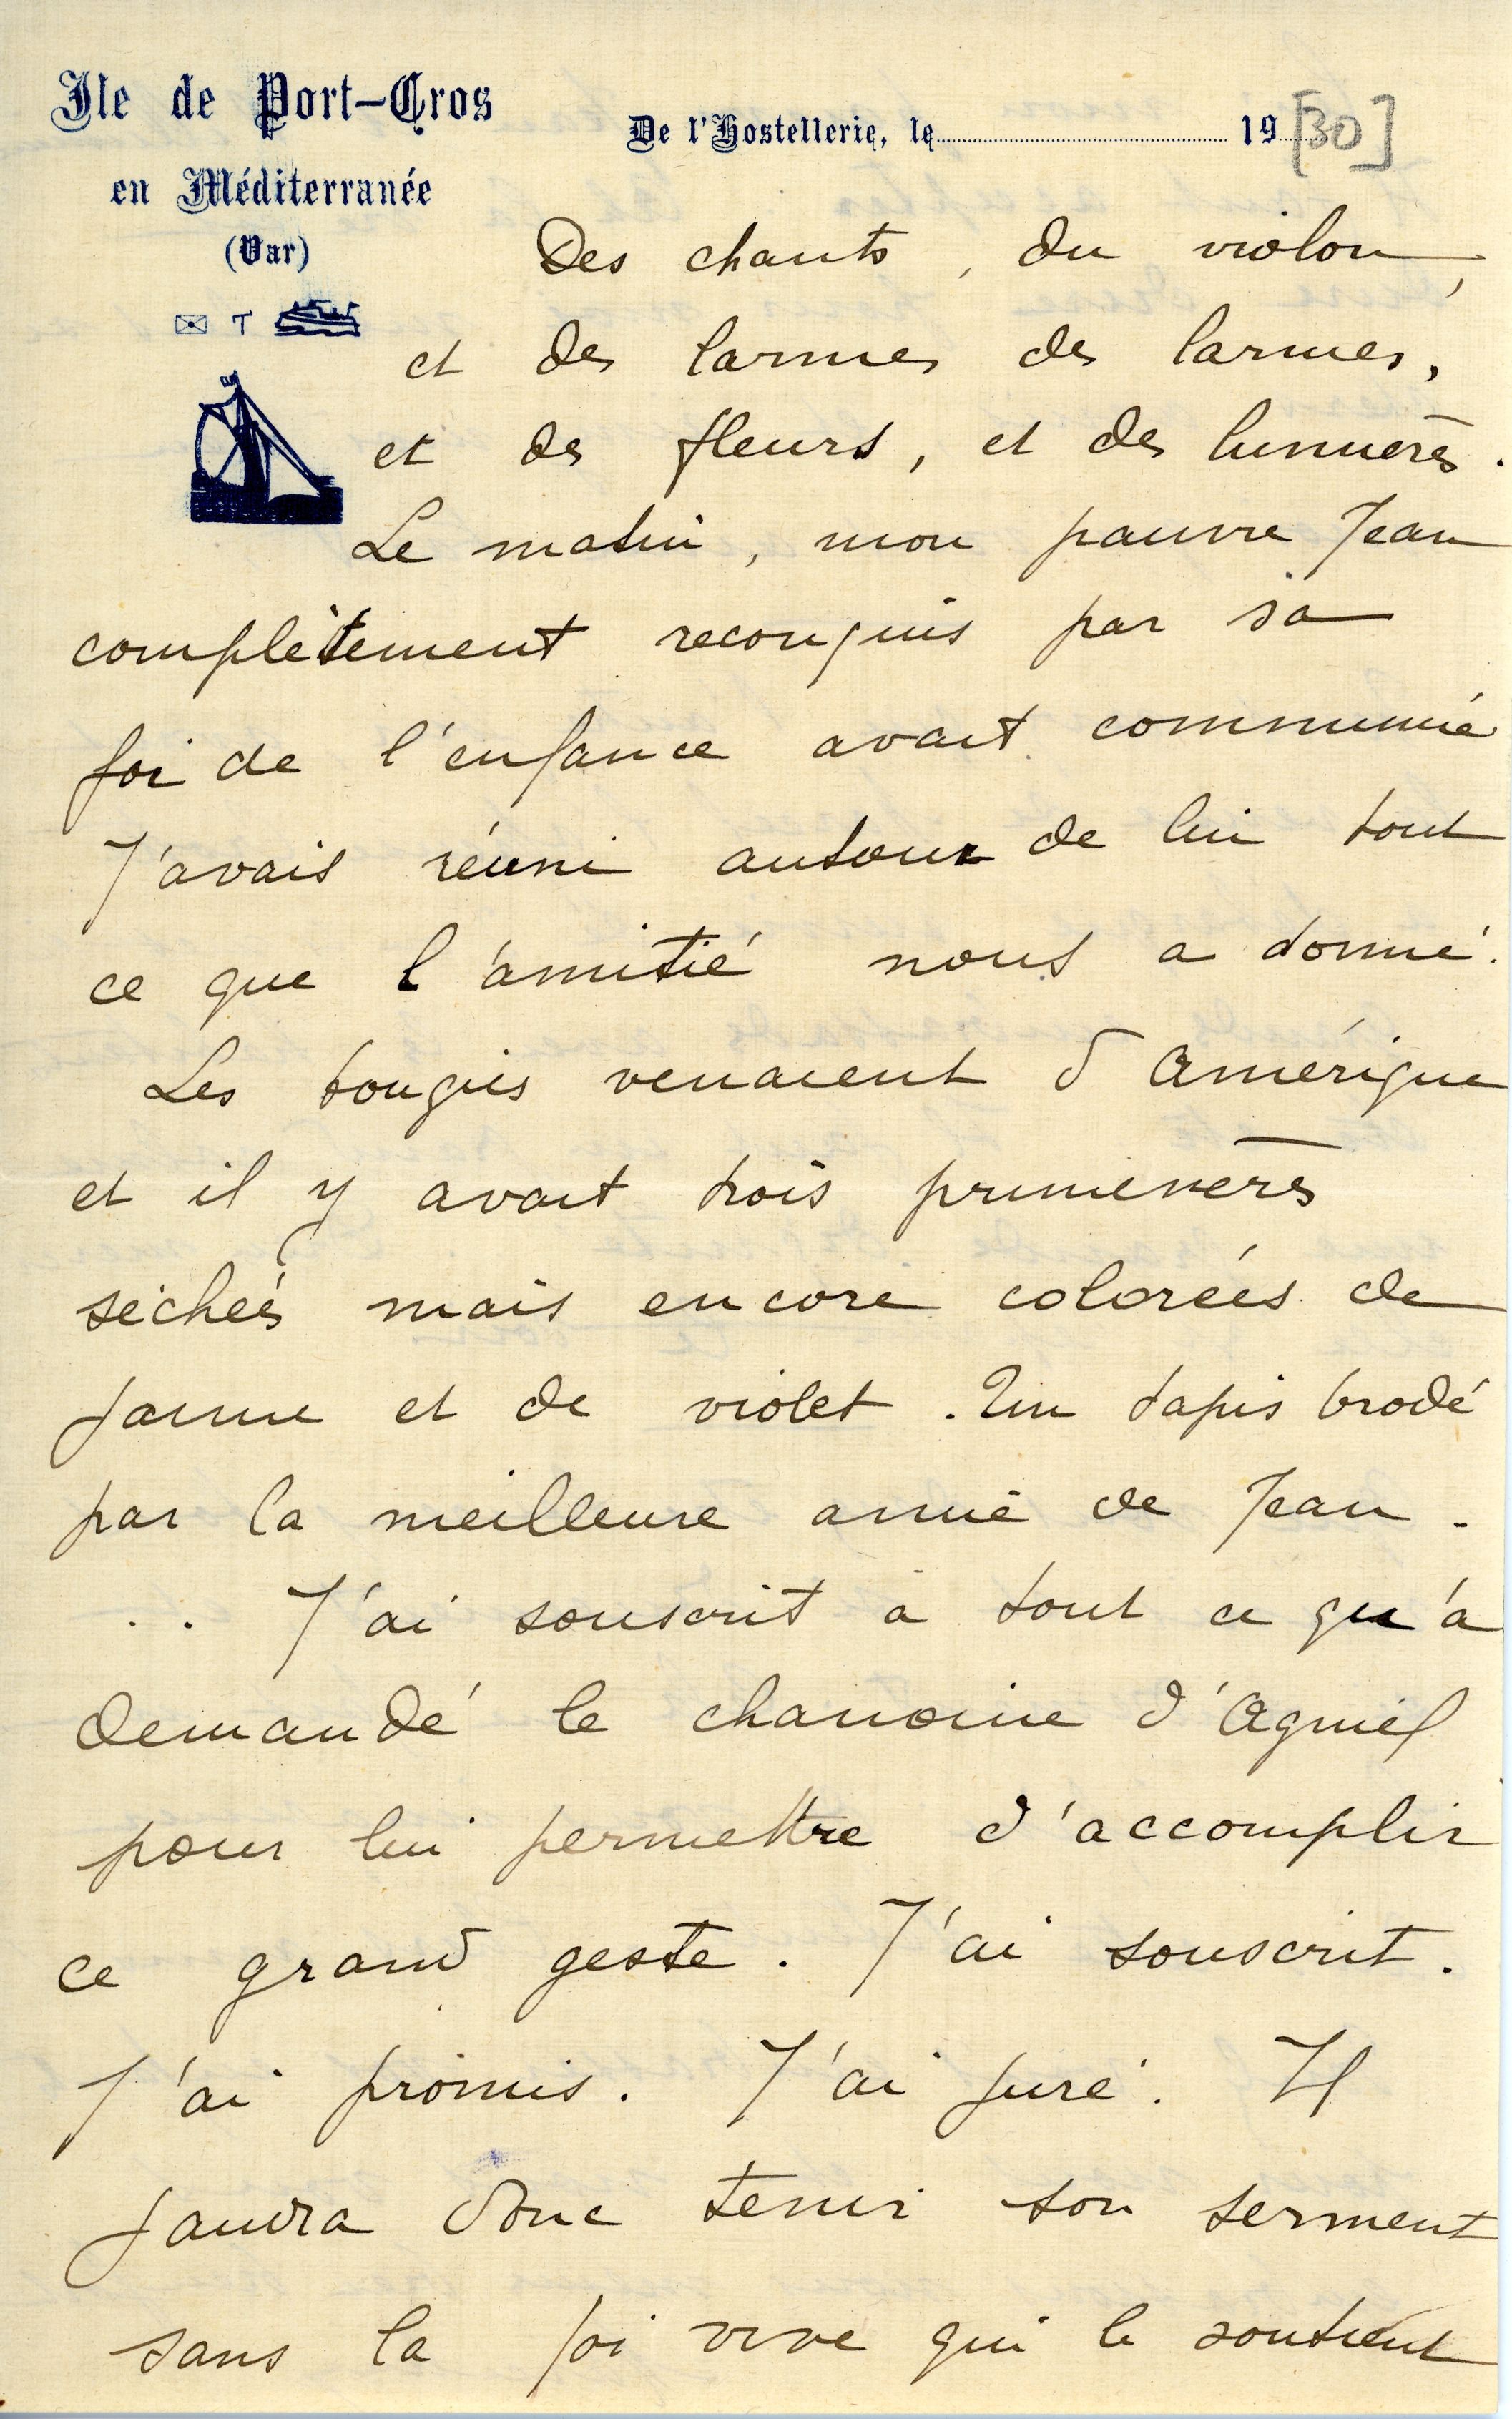 Ile de Port-Cros
en Méditerranée
(Var)
De l'Hostellerie, le 19 [30]
Des chants, du violon,
et des larmes des larmes,
et des fleurs, et des lumières.
Le matin, mon pauvre Jean
complètement reconquis par sa
foi de l'enfance avait communié
J'avais réuni autour de lui tout
ce que l'amitié nous a donné.
Les bougies venaient d'Amérique
et il y avait trois primevères
séchées mais encore colorées de
jaune et de violet. Un tapis brodé
par la meilleure amie de Jean.
.. J'ai souscrit à tout ce qu'a
demandé le chanoine d'Agnel
pour lui permettre d'accomplir
ce grand geste. J'ai souscrit.
J'ai promis. J'ai juré. Il
faudra donc tenir son serment
sans la foi vive qui le soutient